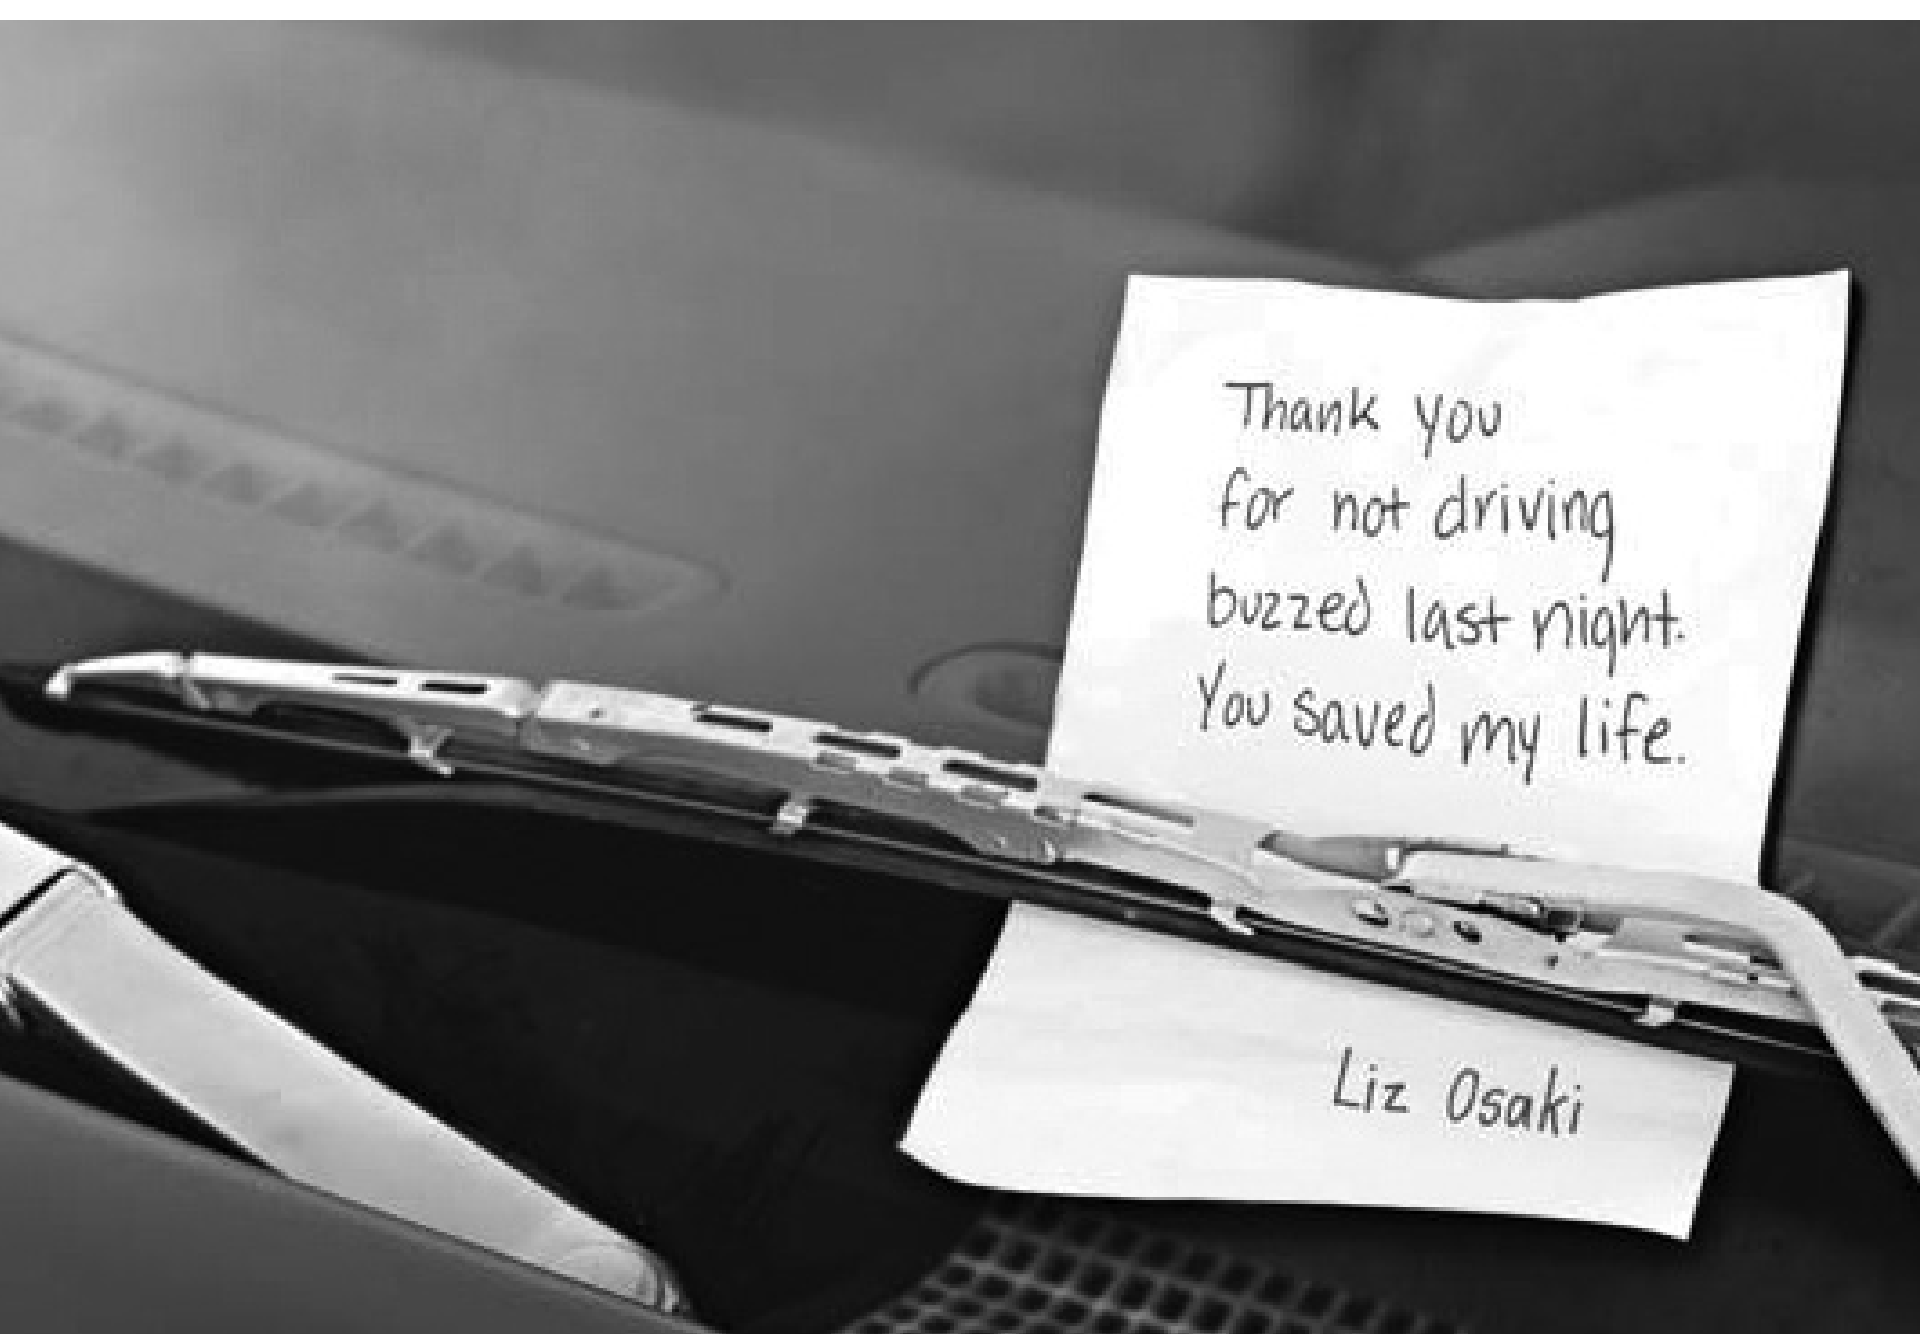 Thank you
for not driving
buzzed last night.
You saved my life.
Liz Osaki